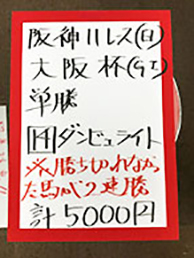 阪神11レース(日)
大阪杯(GI)
単勝
14ダンビュライト
※勝ちきれなかっ
た馬が2連勝
計5000円